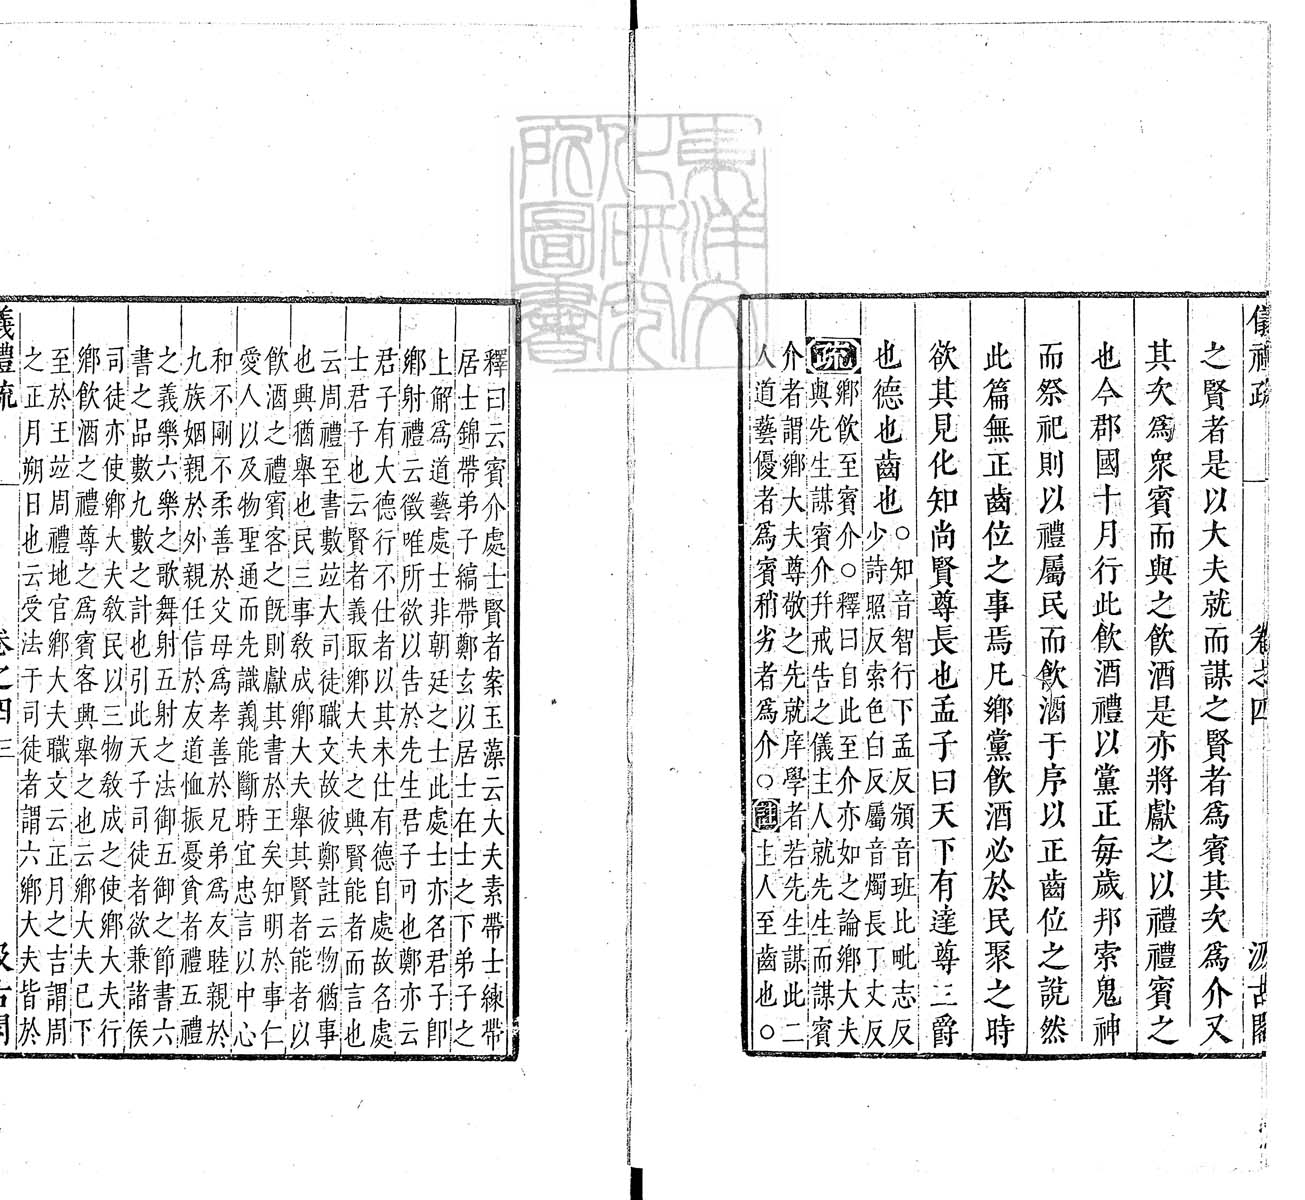 儀禮疏 卷之四 汲古閣
之賢者是以大夫就而謀之賢者爲賓其次爲介又
其次爲衆賓而與之飲酒是亦將獻之以禮禮賓之
也今郡國十月行此飲酒禮以黨正每歲邦索鬼神
而祭祀則以禮屬民而飲酒于序以正齒位之說然
此篇無正齒位之事焉凡鄉黨飲酒必於民聚之時
欲其見化知尚賢尊長也孟子曰天下有達尊三爵
也德也齒也
○知音智行下孟反頒音班比毗志反
少詩照反索色白反屬音燭長丁丈反
疏
鄉飲至賓介○釋曰自此至介亦如之論鄉大夫
與先生謀賓介幷戒告之儀主人就先生而謀賓
介者謂鄉大夫尊敬之先就庠學者若先生謀此二
人道藝優者爲賓稍劣者爲介○註主人至齒也○
釋曰云賓介處士賢者案玉藻云大夫素帶士練帶
居士錦帶弟子縞帶鄭玄以居士在士之下弟子之
上解爲道藝處士非朝廷之士此處士亦名君子卽
鄉射禮云徵唯所欲以告於先生君子可也鄭亦云
君子有大德行不仕者以其未仕有德自處故名處
士君子也云賢者義取鄉大夫之興賢能者而言也
云周禮至書數竝大司徒職文故彼鄭註云物猶事
也興猶舉也民三事敎成鄉大夫舉其賢者能者以
飲酒之禮賓客之旣則獻其書於王矣知明於事仁
愛人以及物聖通而先識義能斷時宜忠言以中心
和不剛不柔善於父母爲孝善於兄弟爲友睦親於
九族姻親於外親任信於友道恤振憂貧者禮五禮
之義樂六樂之歌舞射五射之法御五御之節書六
書之品數九數之計也引此天子司徒者欲兼諸侯
司徒亦使鄉大夫敎民以三物敎成之使鄉大夫行
鄉飲酒之禮尊之爲賓客興舉之也云鄉大夫已下
至於王竝周禮地官鄉大夫職文云正月之吉謂周
之正月朔日也云受法于司徒者謂六鄉大夫皆於
儀禮疏 卷之四 三 汲古閣
東洋文化研究所圖書